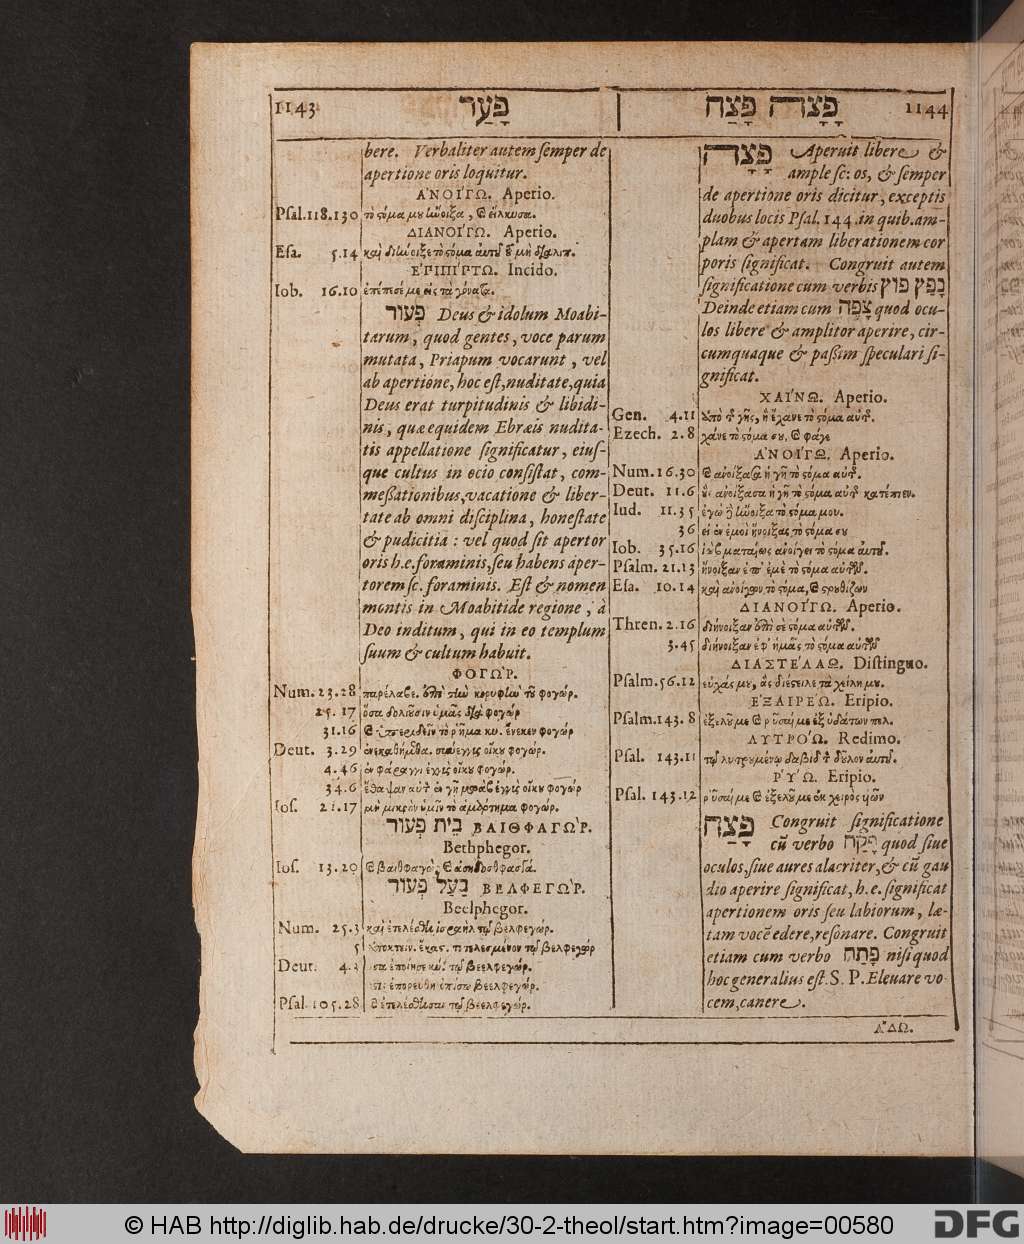 1143 פָּעַר
bere. Verbaliter autem semper de
apertione oris loquitur.
ἈΝΟΊΓΩ. Aperio.
Psal.118.130 τὸ στόμα μου ἤνοιξα, καὶ εἵλκυσα.
ΔΙΑΝΟΊΓΩ. Aperio.
Esa. 5.14 καὶ διήνοιξε τὸ στόμα αὐτοῦ τοῦ μὴ διαλιπ.
ἘΡΙΠΙΡΤΩ. Incido.
Iob. 16.10 ἐπέπεσέ με εἰς τὰ γόνατα.
פְּעוֹר Deus & idolum Moabi-
tarum, quod gentes, voce parum
mutata, Priapum vocarunt, vel
ab apertione, hoc est, nuditate, quia
Deus erat turpitudinis & libidi-
nis, quæ equidem Ebræis nudita-
tis appellatione significatur, eius-
que cultus in ocio consistat, com-
messationibus, vacatione & liber-
tate ab omni disciplina, honestate
& pudicitia: vel quod sit apertor
oris h.e. foraminis, seu habens aper-
torem sc. foraminis. Est & nomen
montis in Moabitide regione, à
Deo inditum, qui in eo templum
suum & cultum habuit.
ΦΟΓΩ῀Ρ.
Num. 23.28 παρέλαβε. ἐπὶ τὴν κορυφὴν τοῦ φογώρ.
25.17 ὅσα δολιοῦσιν ὑμᾶς διὰ φογώρ
31.16 καὶ ὑπεριδεῖν τὸ ῥῆμα κυ. ἕνεκεν φογώρ
Deut. 3.29 ἐνεκαθήμεθα. συνεγγὺς οἴκου φογώρ.
4.46 ἐν φάραγγι ἐγγὺς οἴκου φογώρ.
34.6 ἔθαψαν αὐτὸν ἐν γῇ μωὰβ ἐγγὺς οἴκου φογώρ
Ios. 21.17 μὴ μικρὸν ὑμῖν τὸ ἁμάρτημα φογώρ.
בֵית פְּעוֹר ΒΑΙΘΦΑΓΩ῀Ρ.
Bethphegor.
Ios. 13.20 καὶ βαιθφαγὼρ, καὶ
בַעַל פְּעוֹר ΒΕΛΦΕΓΩ῀Ρ.
Beelphegor.
Num. 25.3 καὶ ἐτελέσθη ἰσραὴλ τῷ βελφεγώρ.
5 ἀποκτείν. ἕκας. τὸν τετελεσμένον τῷ βελφεγώρ
Deut. 4.3 ὅσα ἐποίησε κύ. τῷ βεελφεγώρ.
ἐπορεύθη ὀπίσω βεελφεγώρ.
Psal. 105.28 καὶ ἐτελέσθησαν τῷ βεελφεγώρ.
פָּצָה פָּצַח 1144
פָּצָה Aperuit libere &
ample sc: os, & semper
de apertione oris dicitur, exceptis
duobus locis Psal. 144. in quib. am-
plam & apertam liberationem cor
poris significat. Congruit autem
significatione cum verbis פוּץ נָפַץ
Deinde etiam cum צָפָה quod ocu-
los libere & amplitor aperire, cir-
cumquaque & passim speculari si-
gnificat.
ΧΑΊΝΩ. Aperio.
Gen. 4.11 ἀπὸ τῆς γῆς, ἣ ἔχανε τὸ στόμα αὐτῆς.
Ezech. 2.8 χάνε τὸ στόμα σου, καὶ φάγε
ἈΝΟΊΓΩ. Aperio.
Num. 16.30 καὶ ἀνοίξασα ἡ γῆ τὸ στόμα αὐτῆς.
Deut. 11.6 οὓς ἀνοίξασα ἡ γῆ τὸ στόμα αὐτῆς κατέπιεν.
Iud. 11.35 ἐγὼ δὲ ἤνοιξα τὸ στόμα μου.
36 εἰ ἐν ἐμοὶ ἤνοιξας τὸ στόμα σου
Iob. 35.16 ἰὼβ ματαίως ἀνοίγει τὸ στόμα αὐτοῦ.
Psalm. 21.13 ἤνοιξαν ἐπ' ἐμὲ τὸ στόμα αὐτῶν.
Esa. 10.14 καὶ ἀνοίγων τὸ στόμα, καὶ στρουθίζων
ΔΙΑΝΟΊΓΩ. Aperio.
Thren. 2.16 διήνοιξαν ἐπὶ σὲ στόμα αὐτῶν.
3.45 διήνοιξαν ἐφ' ἡμᾶς τὸ στόμα αὐτῶν
ΔΙΑΣΤΕΛΛΩ. Distinguo.
Psalm. 56.12 εὐχάς μου, ἃς διέστειλε τὰ χείλη μου.
ἘΞΑΙΡΕΏ. Eripio.
Psalm. 143.8 ἐξελοῦ με καὶ ῥῦσαί με ἐξ ὑδάτων πολ.
ΛΥΤΡΟΏ. Redimo.
Psal. 143.11 τῷ λυτρουμένῳ δαβὶδ τὸν δοῦλον αὐτοῦ.
ῬΎΩ. Eripio.
Psal. 143.12 ῥῦσαί με καὶ ἐξελοῦ με ἐκ χειρὸς υἱῶν
פָּצַח Congruit significatione
cũ verbo פָּקַח quod siue
oculos, siue aures alacriter, & cũ gau
dio aperire significat, h.e. significat
apertionem oris seu labiorum, læ-
tam vocẽ edere, resonare. Congruit
etiam cum verbo פָּתַח nisi quod
hoc generalius est. S. P. Eleuare vo-
cem, canere.
ἌΔΩ.
© HAB http://diglib.hab.de/drucke/30-2-theol/start.htm?image=00580
DFG